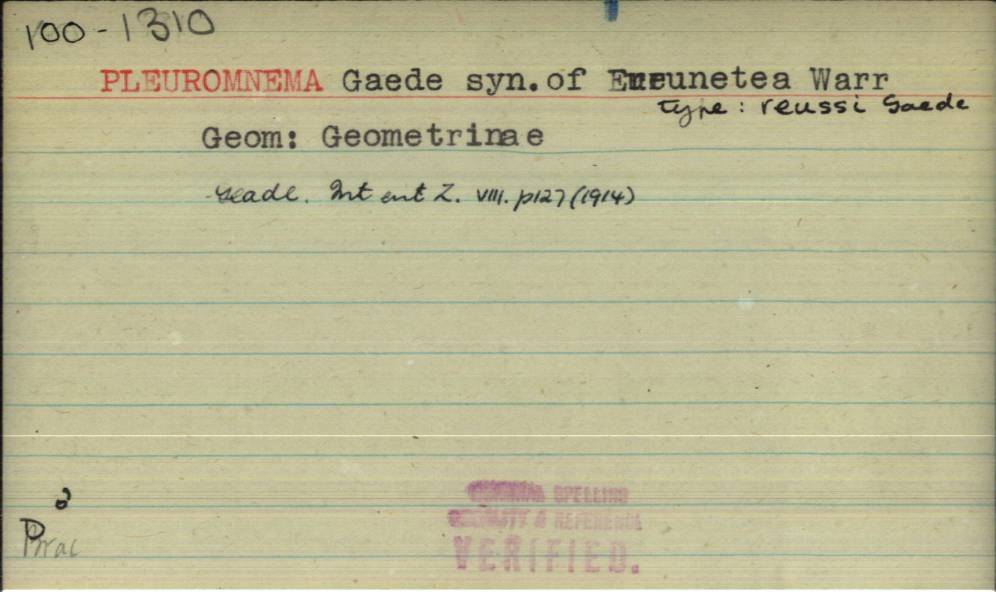 100-1310
PLEUROMNEMA Gaede syn. of Eueunetea Warr
type: reussi Gaede
Geom: Geometrinae
Gaede. Int ent Z. VIII. p127 (1914)
ORIGINAL SPELLING
& REFERENCE
VERIFIED.